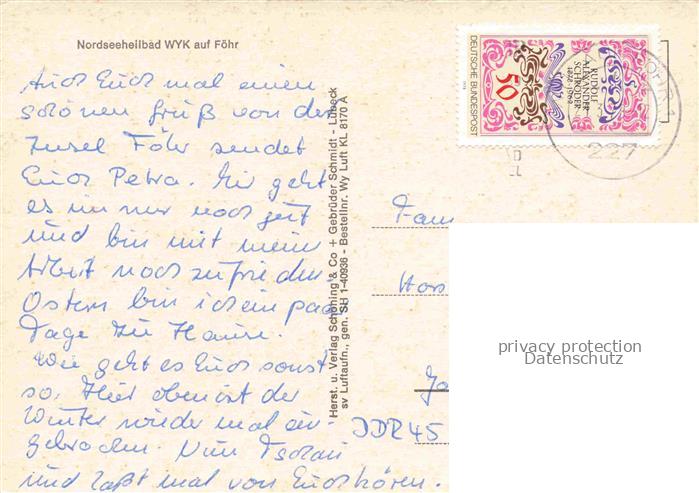 Nordseeheilbad WYK auf Föhr
Auch Euch mal einen
schönen Gruß von der
Insel Föhr sendet
Euch Petra. Mir geht
es nun nur noch gut
und bin mit mein
Arbeit noch zufrieden
Ostern bin ich ein paar
Tage zu Hause.
Wie geht es Euch sonst
so. Hier oben ist der
Winter wieder mal ein-
gebrochen. Nun Tschau
und laßt mal von Euch hören.
Herst. u. Verlag Schöning & Co + Gebrüder Schmidt - Lübeck
sv Luftaufn., gen. SH 1-40936 - Bestellnr. Wy Luft KL 8170 A
DEUTSCHE BUNDESPOST
50
RUDOLF
ALEXANDER
SCHRÖDER
1878-1962
227
Fam
Hors
DDR 45
privacy protection
Datenschutz